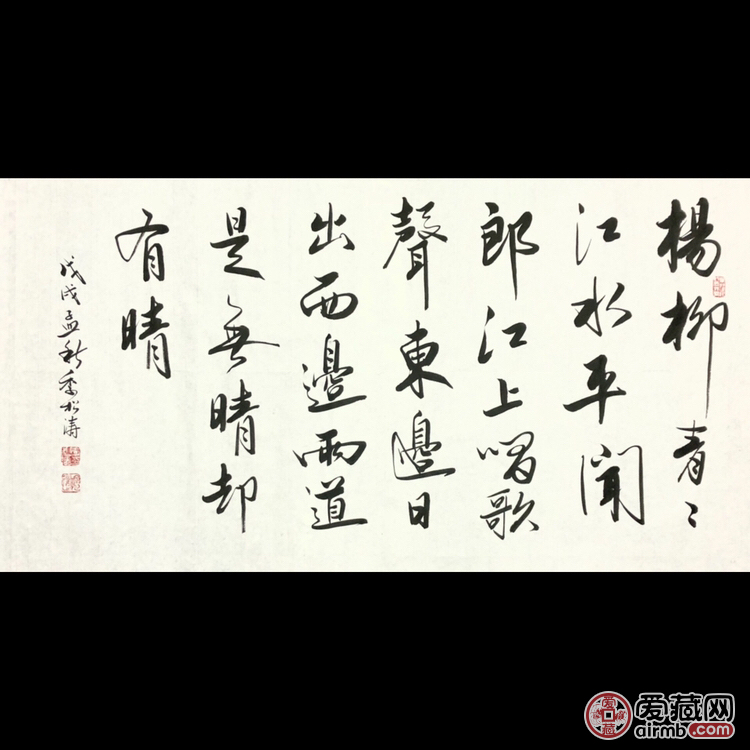 楊柳青〻
江水平聞
郎江上唱歌
聲東邊日
出西邊雨道
是無晴却
有晴
戊戌孟秋季松濤
爱藏网
airmb.com